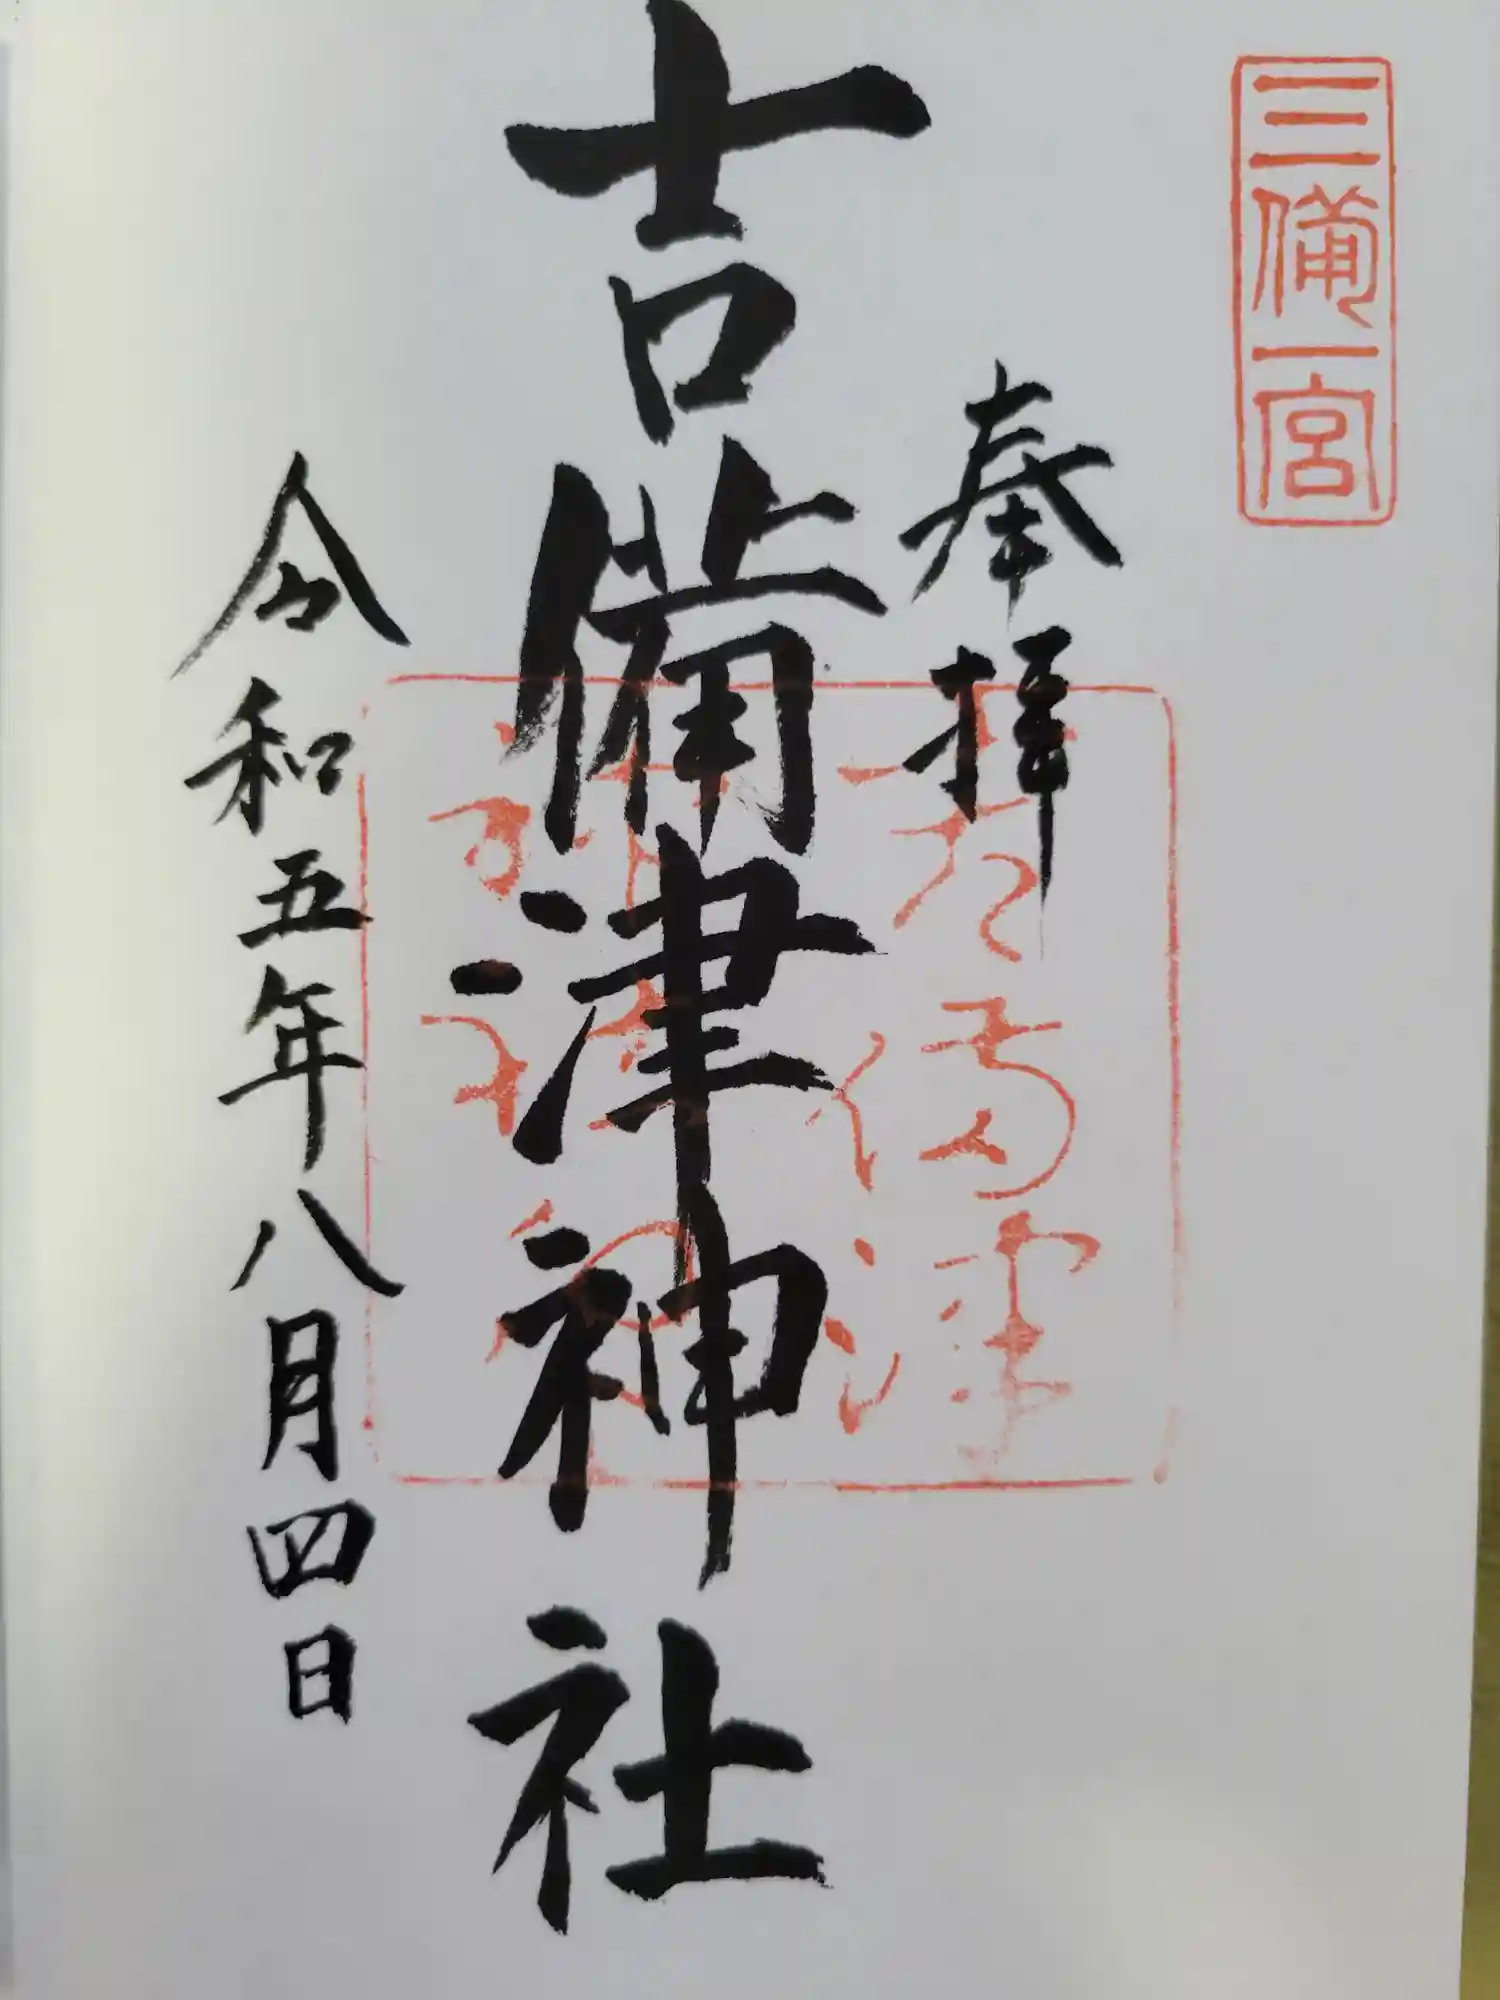 三備一宮
奉拝
吉備津神社
令和五年八月四日
吉備津